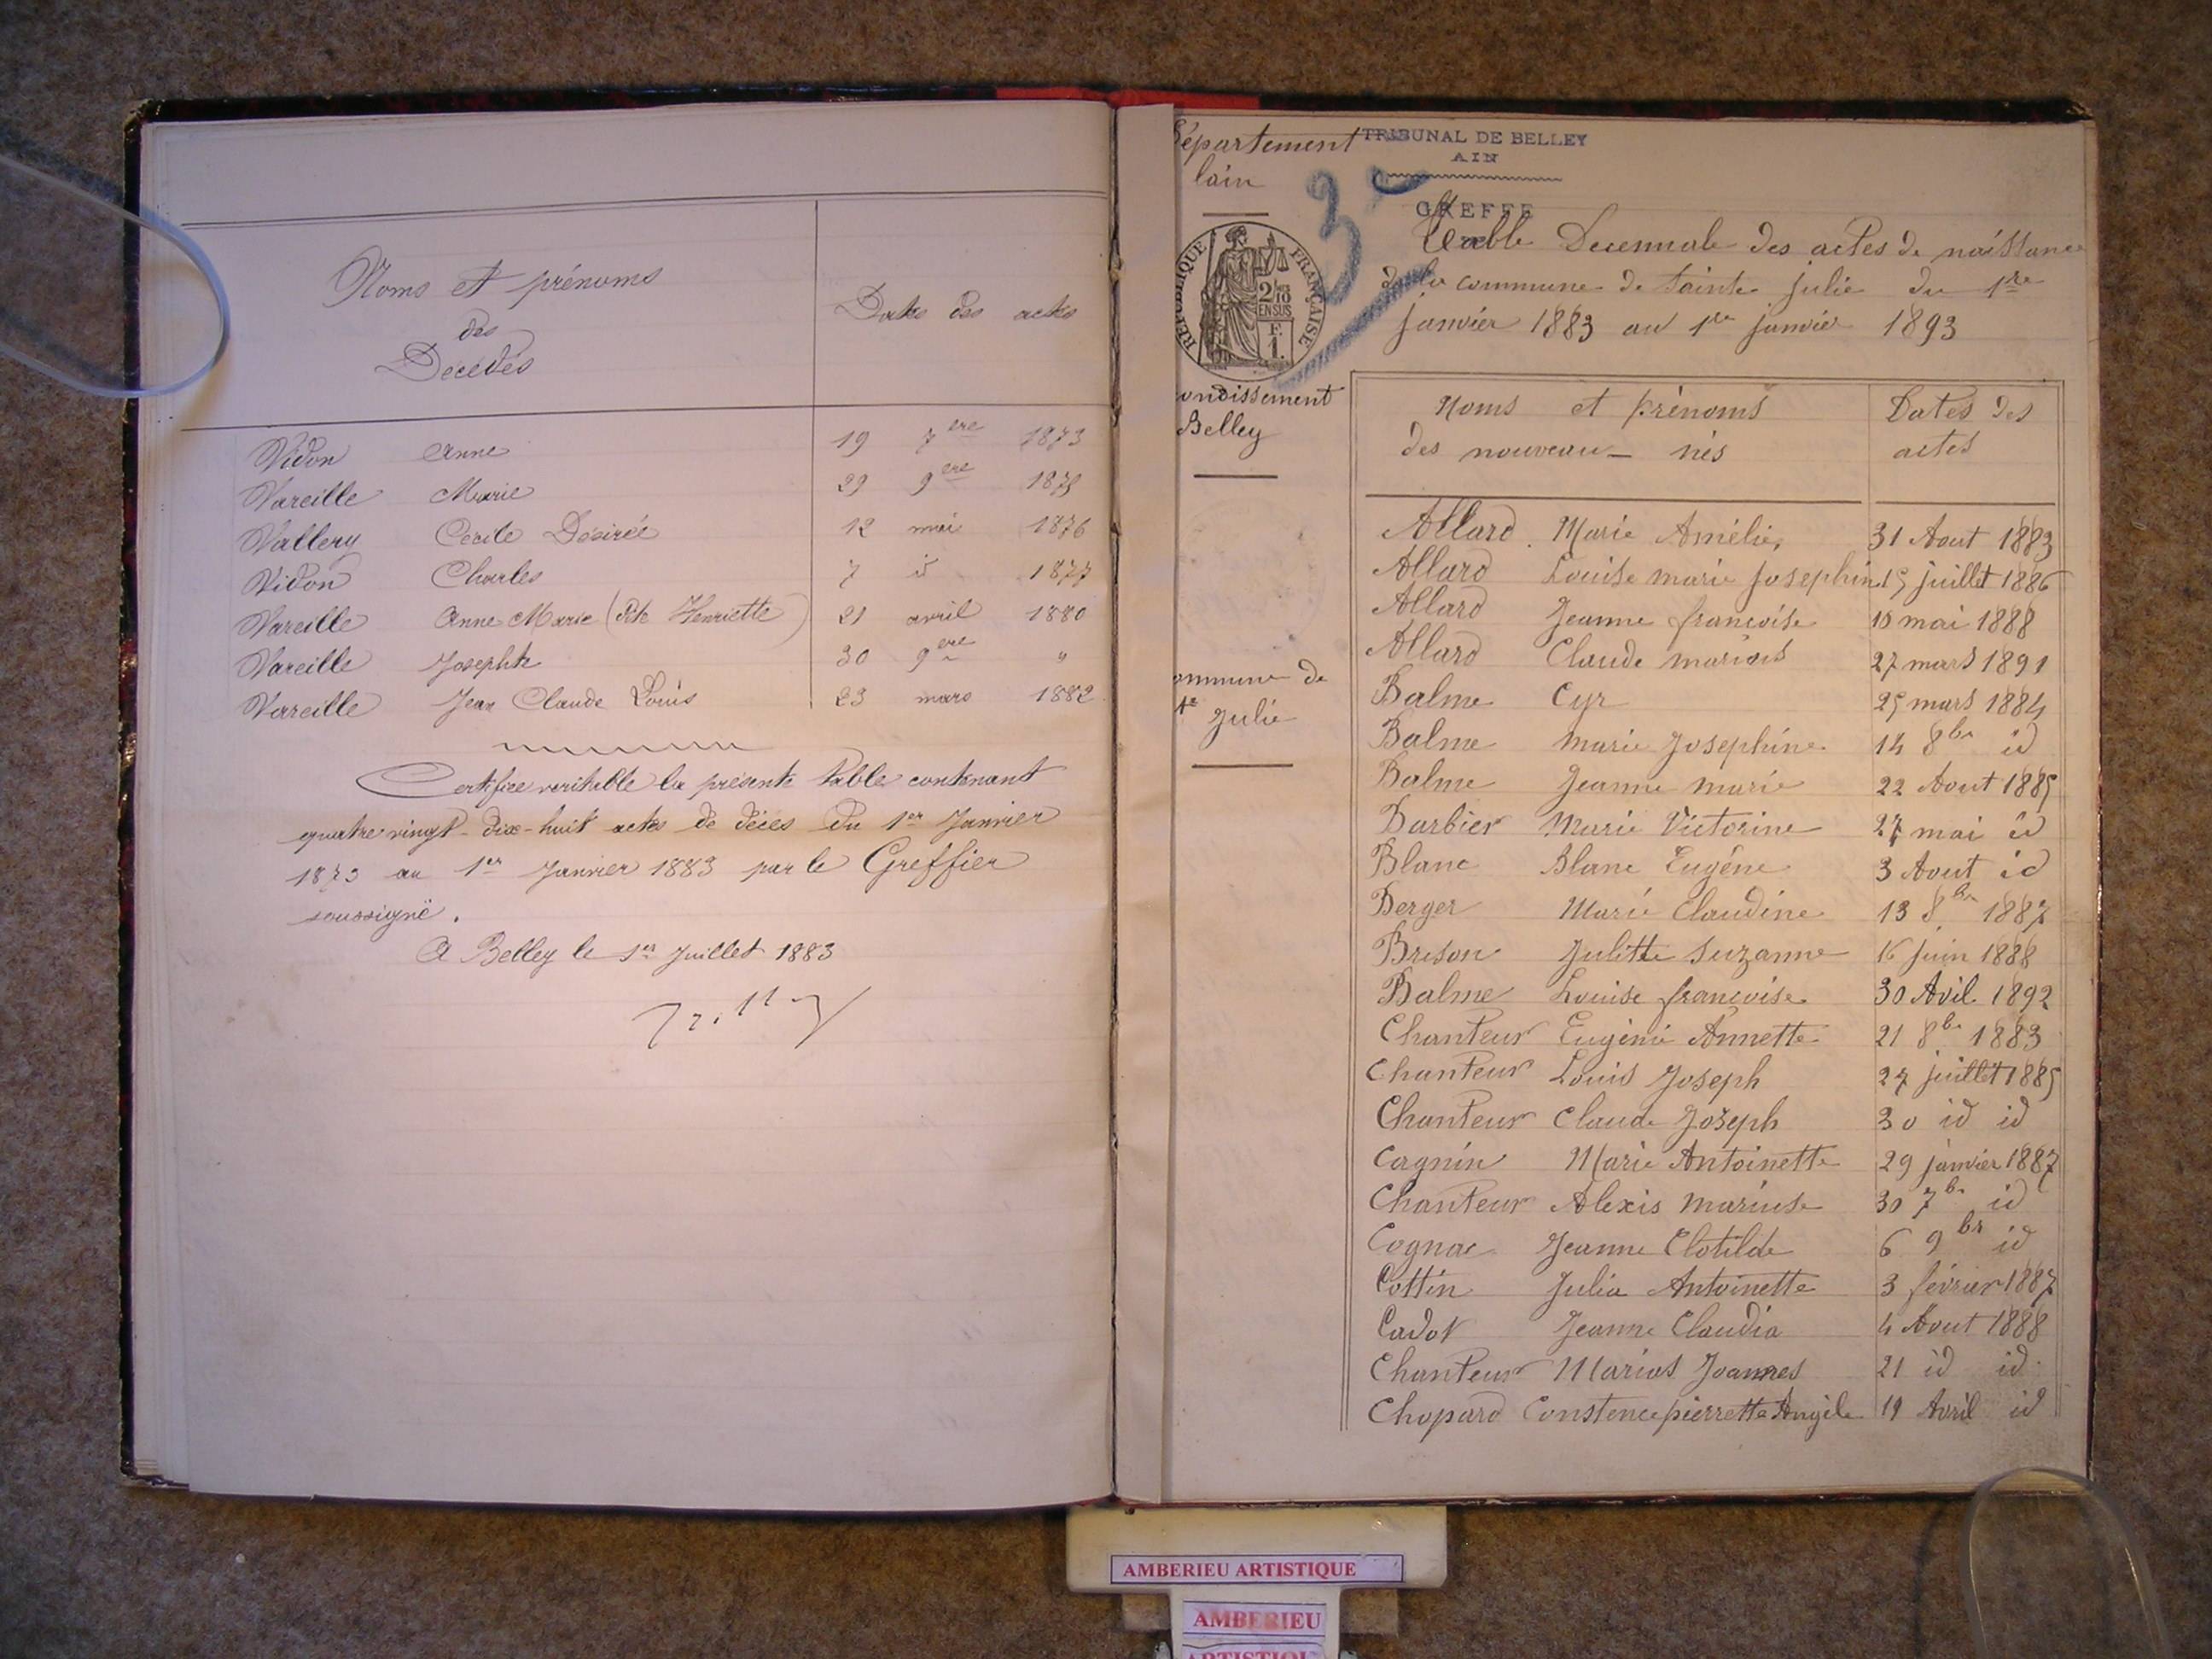 Noms et prénoms
des
Décédés
Dates des actes
Vidon Anne 19 7ere 1873
Vareille Marie 29 9ere 1875
Vallery Cécile Désirée 12 mai 1876
Vidon Charles 7 id 1877
Vareille Anne Marie (dite Henriette) 21 avril 1880
Vareille Josephte 30 9ere "
Vareille Jean Claude Louis 23 mars 1882
Certifiée veritable la présente table contenant
quatre vingt-dix-huit actes de décès du 1er Janvier
1873 au 1er Janvier 1883 par le Greffier
soussigné.
A Belley le 1er Juillet 1883
Département
lain
TRIBUNAL DE BELLEY
AIN
GREFFE
35
RÉPUBLIQUE FRANÇAISE
2/10
EN SUS
F.
1.
Table Decennale des actes de naissance
de la commune de Sainte Julie du 1re
janvier 1883 au 1re janvier 1893
ondissement
Belley
ommune de
Ste Julie
Noms et prénoms
des nouveau-nés
Dates des
actes
Allard Marie Amélie 31 Aout 1883
Allard Louise marie Josephin 15 juillet 1886
Allard Jeanne françoise 10 mai 1888
Allard Claude marius 27 mars 1891
Balme Cyr 25 mars 1884
Balme marie Josephine 14 8br id
Balme Jeanne marie 22 Aout 1885
Barbier Marie Victorine 27 mai id
Blanc Blanc Eugène 3 Aout id
Berger Marie Claudine 13 8br 1887
Brison Julitte Suzanne 16 juin 1888
Balme Louise françoise 30 Avil 1892
Chanteur Eugénie Annette 21 8br 1883
Chanteur Louis Joseph 27 juillet 1885
Chanteur Claude Joseph 30 id id
Cagnin Marie Antoinette 29 janvier 1887
Chanteur Alexis mariuse 30 7br id
Cognac Jeanne Clotilde 6 9br id
Cottin Julia Antoinette 3 février 1887
Cadot Jeanne Claudia 4 Aout 1888
Chanteur Marius Joannes 21 id id
Chopard Constence pierrette Angèle 19 Avril id
AMBERIEU ARTISTIQUE
AMBERIEU
ARTISTIQUE